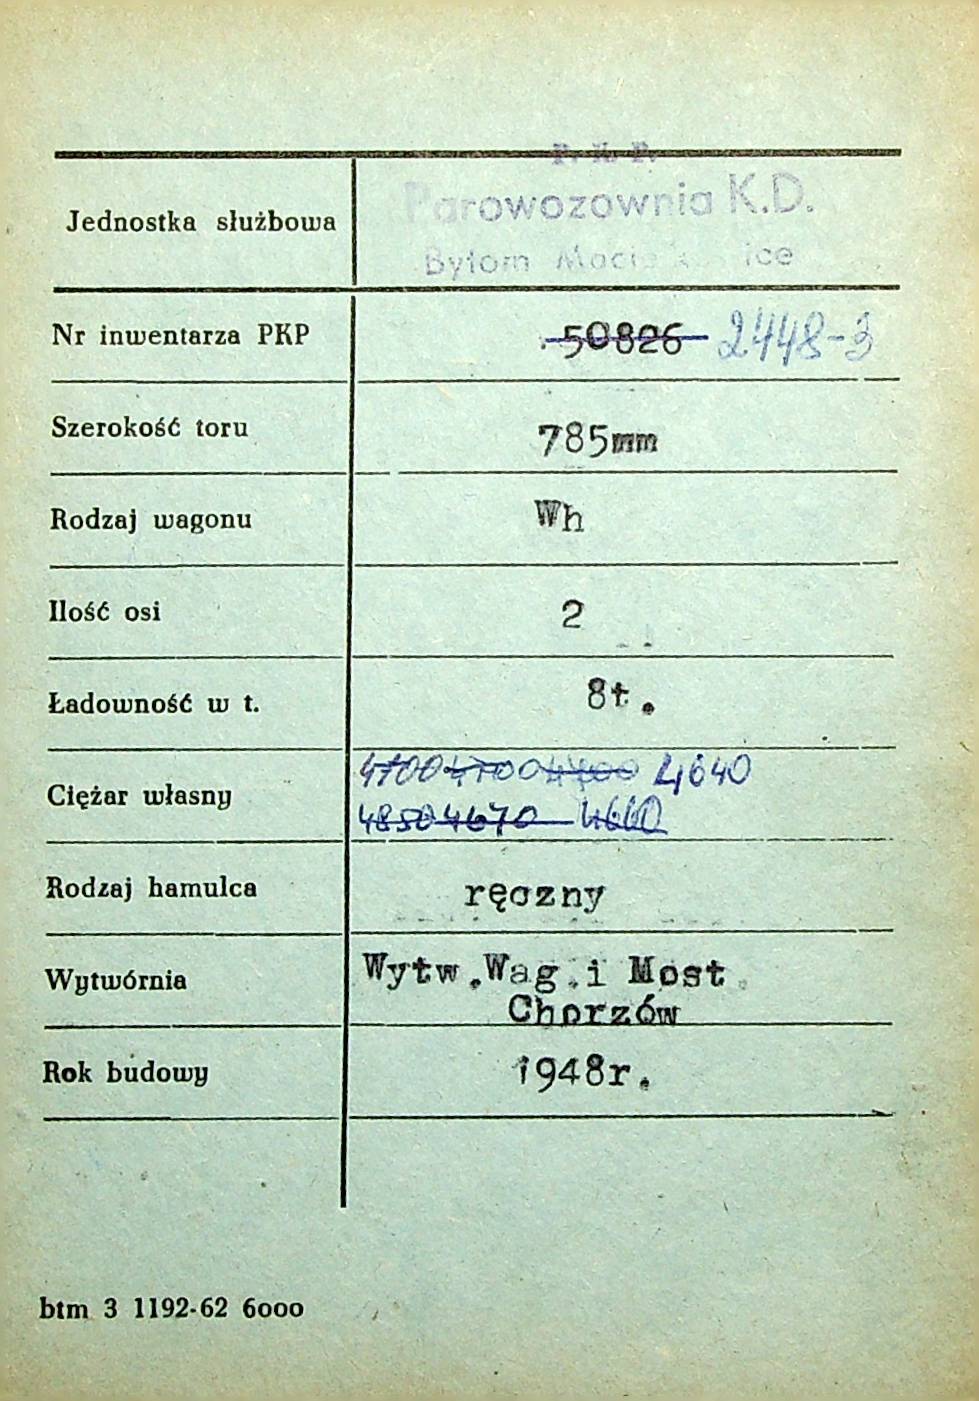 P. K. P.
Jednostka służbowa Parowozownia K.D.
Bytom
Nr inwentarza PKP 50826 2448-3
Szerokość toru 785mm
Rodzaj wagonu Wh
Ilość osi 2
Ładowność w t. 8t.
4700 4700 4700 4640
Ciężar własny
4850 4670 4660
Rodzaj hamulca ręczny
Wytwórnia Wytw.Wag.i Most
Chorzów
Rok budowy 1948r.
btm 3 1192-62 6000